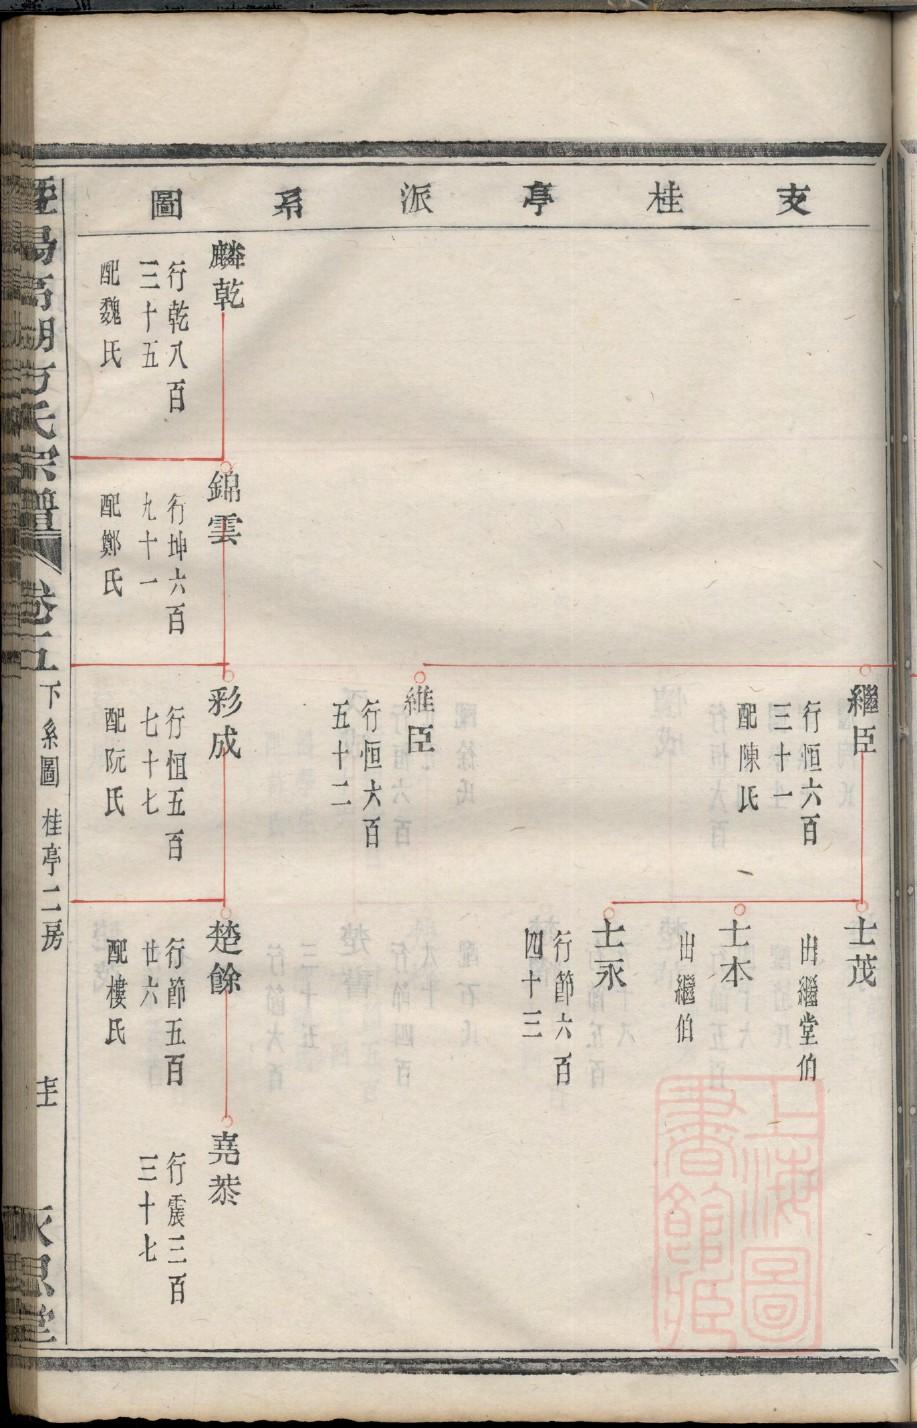 支桂亭派系圖
繼臣
行恒六百
三十一
配陳氏
士茂
出繼堂伯
士本
出繼伯
士永
行節六百
四十三
維臣
行恒六百
五十二
麟乾
行乾八百
三十五
配魏氏
錦雲
行坤六百
九十一
配鄭氏
彩成
行恒五百
七十七
配阮氏
楚餘
行節五百
廿六
配樓氏
堯恭
行震三百
三十七
暨陽高湖方氏宗譜
卷十五
下系圖 桂亭二房
永思堂
上海圖書館藏